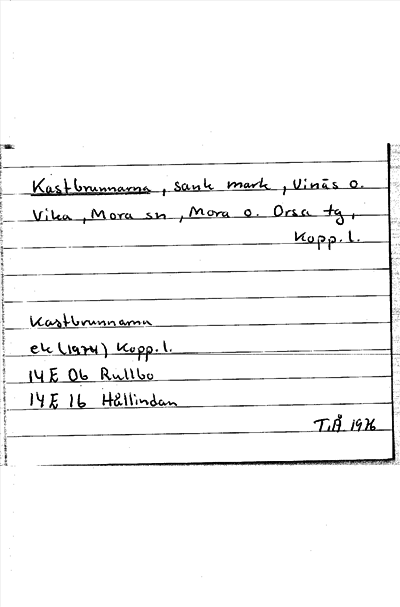 Kastbrunnarna, sank mark, Vinäs o.
Vika, Mora sn, Mora o. Orsa tg,
Kopp. l.
Kastbrunnarna
ek (1974) Kopp. l.
14 E 0b Rullbo
14 E 1b Hållindan
T.Å 1976